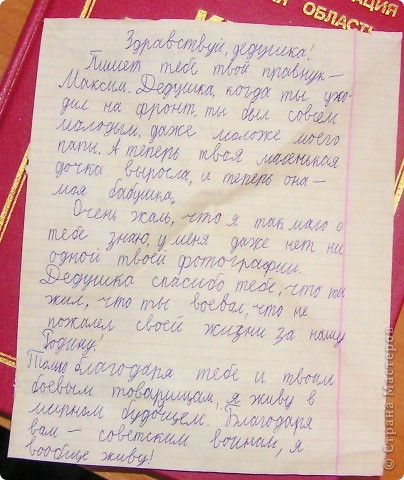 АЦИЯ
АЯ ОБЛАСТЬ
Здравствуй, дедушка!
Пишет тебе твой правнук –
Максим. Дедушка, когда ты ухо-
дил на фронт, ты был совсем
молодым, даже моложе моего
папы. А теперь твоя маленькая
дочка выросла, и теперь она –
моя бабушка.
Очень жаль, что я так мало о
тебе знаю, у меня даже нет ни
одной твоей фотографии.
Дедушка спасибо тебе, что ты
жил, что ты воевал, что не
пожалел своей жизни за нашу
Родину!
Только благодаря тебе и твоим
боевым товарищам, я живу в
мирном будущем. Благодаря
вам – советским воинам, я
вообще живу!
© Страна Мастеров